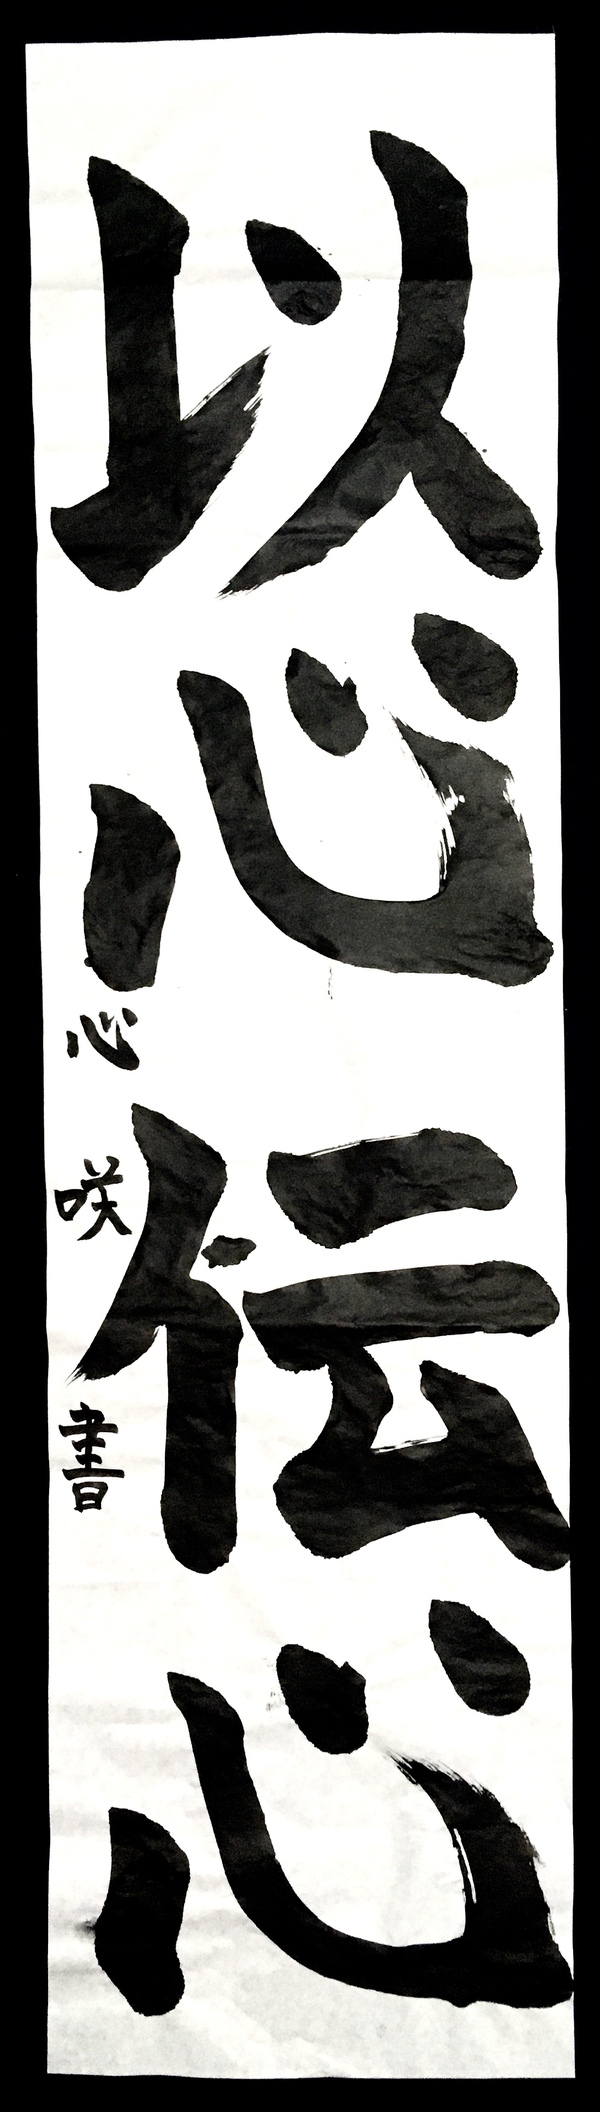 以心伝心
心咲書